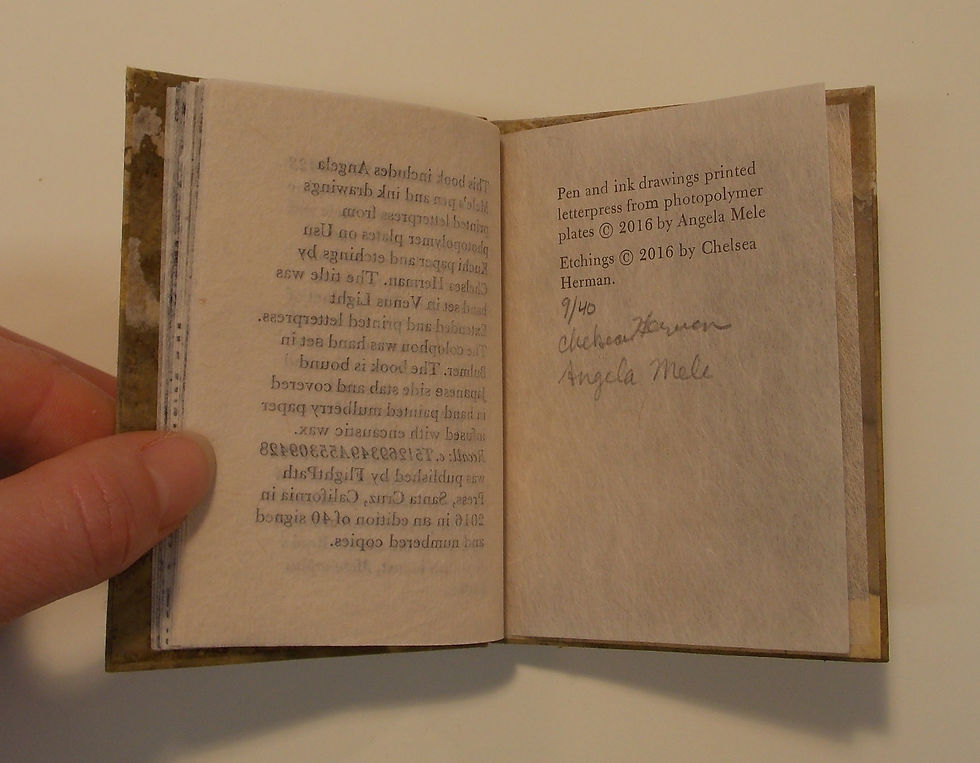 This book includes Angela
Mele's pen and ink drawings
printed letterpress from
photopolymer plates on Usu
Kuchi paper and etchings by
Chelsea Herman. The title was
hand set in Venus Light
Extended and printed letterpress.
The colophon was hand set in
Bulmer. The book is bound
Japanese side stab and covered
in hand painted mulberry paper
infused with encaustic wax.
Recall: c.
was published by FlightPath
Press, Santa Cruz, California in
2016 in an edition of 40 signed
and numbered copies.
Pen and ink drawings printed
letterpress from photopolymer
plates © 2016 by Angela Mele
Etchings © 2016 by Chelsea
Herman.
9/40
Chelsea Herman
Angela Mele